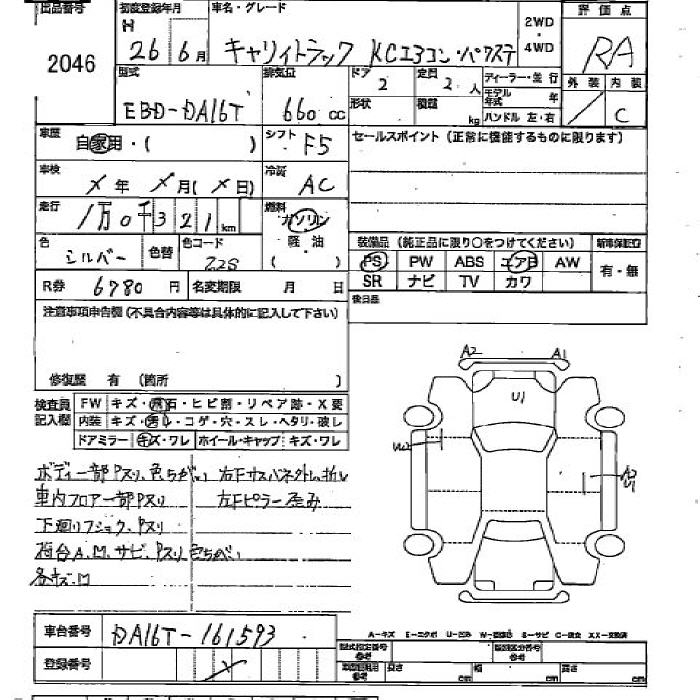 出品番号 初度登録年月 車名・グレード 2WD・4WD 評価点
2046 H 26年 6月 キャリイトラック KCエアコン・パワステ RA
型式 排気量 ドア 定員 ディーラー・並行 外装 内装
EBD-DA16T 660 cc 2 2人 モデル年式 年 / C
形状 積載 kg ハンドル 左・右
車歴 自家用・( ) シフト F5 セールスポイント (正常に機能するものに限ります)
車検 ×年 ×月(×日) 冷房 AC
走行 1万0千321km 燃料 ガソリン
色 シルバー 色替 色コード Z2S 軽・油 ( )
装備品 (純正品に限り○をつけてください) 新車保証書
PS PW ABS エアB AW 有・無
SR ナビ TV カワ
R券 6780 円 名変期限 月 日 後日品
注意事項申告欄 (不具合内容等は具体的に記入して下さい)
修復歴 有 (箇所 )
検査員記入欄 FW キズ・飛石・ヒビ割・リペア跡・X要
内装 キズ・汚レ・コゲ・穴・スレ・ヘタリ・破レ
ドアミラー キズ・ワレ ホイール・キャップ キズ・ワレ
A2 A1
U1
W2
A2
U1
ボディー部Pスリ、色ちがい 右Fサスバネ外し、折レ
車内フロアー部Pスリ 左Fピラー歪み
下廻りフショク、Pスリ
荷台A.M.サビ、Pスリ色ちがい
各キズ・凹
車台番号 DA16T-161593
登録番号 ×
A-キズ E-エクボ U-凹み W-波修ヒ S-サビ C-腐食 XX-交換済
型式指定番号 参考 類別区分番号 参考
長さ cm 幅 cm 高さ cm